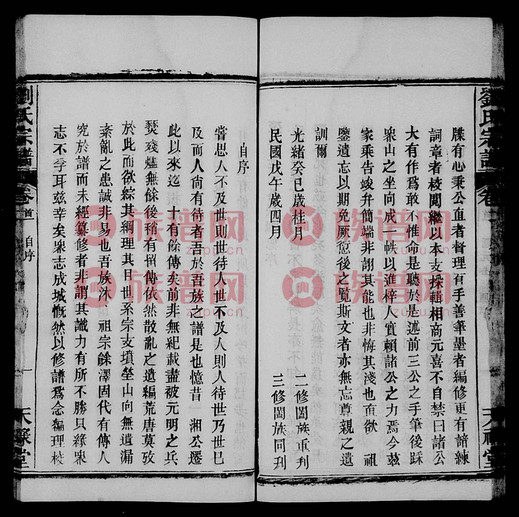 滕有心秉公直者督理有手善筆墨者編修更有諳練
詞章者校閱繼以本支採籍相商元喜不自禁曰諸公
大有作為敢不惟命是聽於是述前三公之手筆後踩
眾山之坐向成一帙以進梓人實賴諸公之力焉今茲
家乘告竣弁簡端非詡其能也非悔其淺也直欲 祖
鑒遺忘以期免厥愆後之覽斯文者亦無忘尊親之遺
訓爾
光緒癸巳歲桂月 二修闔族重刋
民國戊午歲四月 三修闔族同刋
劉氏宗譜
卷首
自序
天祿堂
自序
嘗思人不及世則世待人世不及人則人待世乃世已
及而人尙有待者吾於吾族之譜是也憶昔 湘公遷
此以來迄 十有餘傳矣前非無紀載盡被元明之兵
燹殘燼無餘後稍有留傳依然散亂之遺編荒唐莫攷
於此而欲綜其綱理其世系宗支墳塋山向無遺漏
紊亂之患誠非易也吾族沐 祖宗餘澤固代有傳人
究於譜而未經纂修者非謂其識力有所不勝貝緣衆
志不孚耳茲幸矣衆志成城慨然以修譜為念編理校